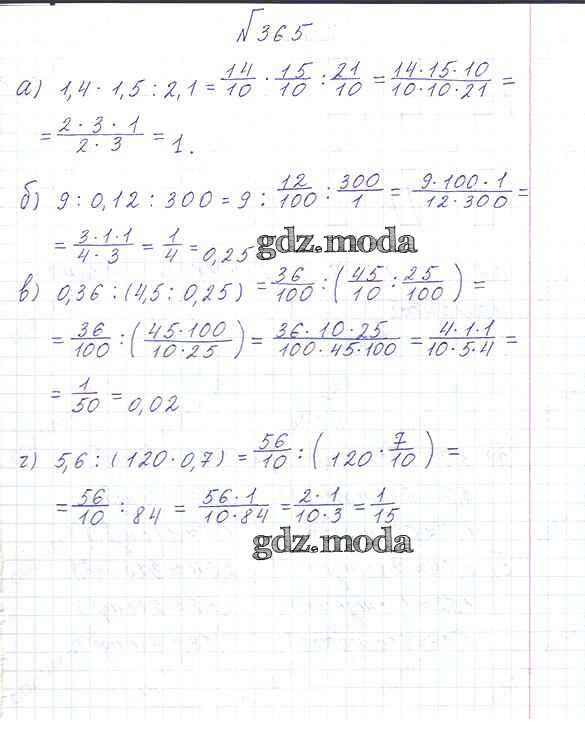 √365
а) 1,4 · 1,5 : 2,1 = 14/10 · 15/10 : 21/10 = 14·15·10/10·10·21 =
= 2·3·1/2·3 = 1.
б) 9 : 0,12 : 300 = 9 : 12/100 : 300/1 = 9·100·1/12·300 =
= 3·1·1/4·3 = 1/4 = 0,25
gdz.moda
в) 0,36 : (4,5 : 0,25) = 36/100 : (45/10 : 25/100) =
= 36/100 : (45·100/10·25) = 36·10·25/100·45·100 = 4·1·1/10·5·4 =
= 1/50 = 0,02
г) 5,6 : (120 · 0,7) = 56/10 : (120 · 7/10) =
= 56/10 : 84 = 56·1/10·84 = 2·1/10·3 = 1/15
gdz.moda